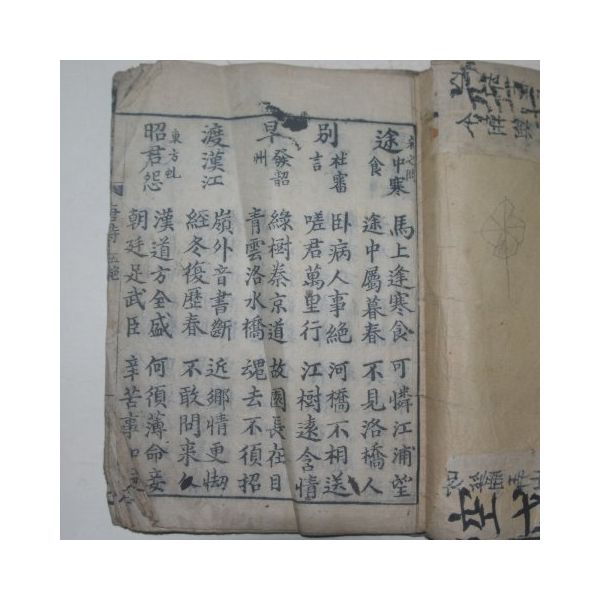 途中寒食
馬上逢寒食 可憐江浦望
途中屬暮春 不見洛橋人
別杜審言
卧病人事絶 河橋不相送
嗟君萬里行 江樹遠含情
早發韶州
綠樹秦京道 故園長在目
青雲洛水橋 魂去不須招
渡漢江
嶺外音書斷 近鄉情更㤼
經冬復歷春 不敢問來人
東方虬
昭君怨
漢道方全盛 何須薄命妾
朝廷足武臣 辛苦事
唐詩 五絶